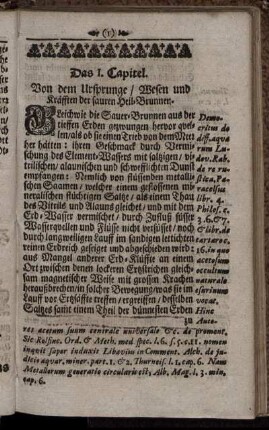 (1)
Das I. Capitel.
Von dem Ursprunge / Wesen und
Kräfften der sauren Heil-Brunnen.
Gleichwie die Sauer-Brunnen aus der
tieffen Erden gezwungen hervor quel-
len / als ob sie einen Trieb von dem Met-
her hätten: ihren Geschmack durch Vermi-
schung des Element-Wassers mit saltzigen / vi-
triolischen / alaunischen und schwefflichten Dunst
empfangen: Nemlich von füssenden metalli-
schen Saamen / welcher einem geflossenen mi-
neralischen flüchtigen Saltze / als einem Thau
des Nitrils und Alauns gleichet / und mit dem
Erd-Wasser vermischet / durch Zufluß süsser
Wasserquellen und Flüsse nicht versüsset / noch
durch langweiligen Lauff im sandigten lettichten
reinen Erdreich geseiget und abgescheiden wird:
aus Mangel anderer Erd-Klüffte an einem
Ort zwischen denen lockeren Erdstrichen gleich-
sam magnetischer Weise mit grossen Krachen
herausbrechen / in solcher Bewegung / was sie im
Lauff vor Ertzstoffe treffen / ergreiffen / desselben
Saltzes samt einem Theil der dünnesten Erden
zu
Demo-
critus de
diff. aqua
rum Lu-
dov. Rab.
de re ru-
stica, Pa-
racelsus
libr. 4.
Philos. c.
3. 6. & 7.
libr. de
tartaro c.
16. innu
acetosum
occultum
naturale
esurinum
vocat.
Hinc
Auto-
res acetum suum centrale universale &c. de promunt,
Sic Rulfine. Ord. & Meth. med. spec. l. 5. c. 11. nomen
inquit sapor induxit Libavius in Comment. Alch. de ju-
dicio aquar. miner. part. 1. & 2. Thurneis. l. 2. cap. 6. Nam
Metallorum generatio circularis est, Alb. Mag. l. 3. min.
cap. 6.